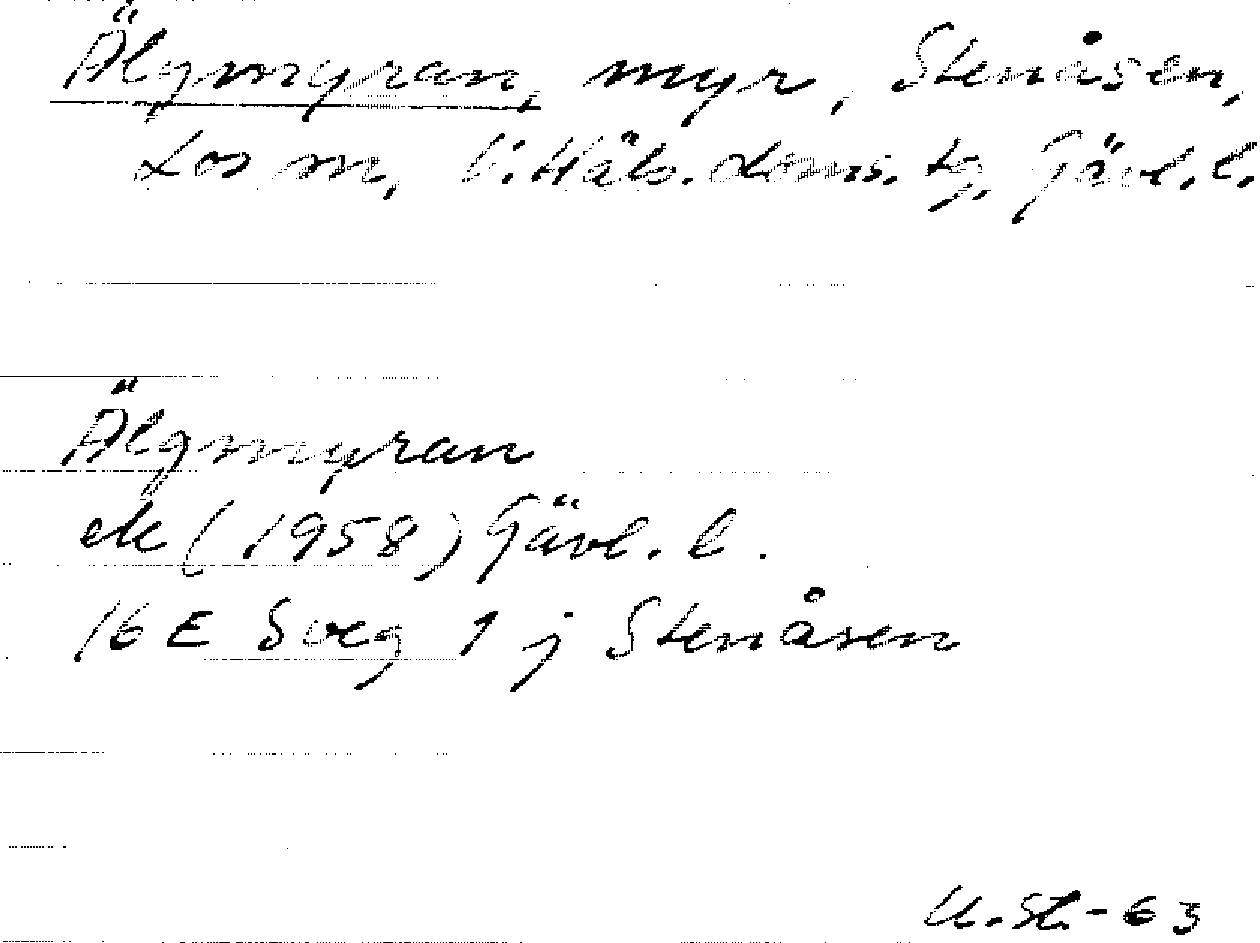 Älgmyran, myr, Stenåsen,
Los sn, V. Häls. doms. tg, Gävl. l.
Älgmyran
ek (1958) Gävl. l.
16 E Sveg 1 j Stenåsen
U. St. - 63